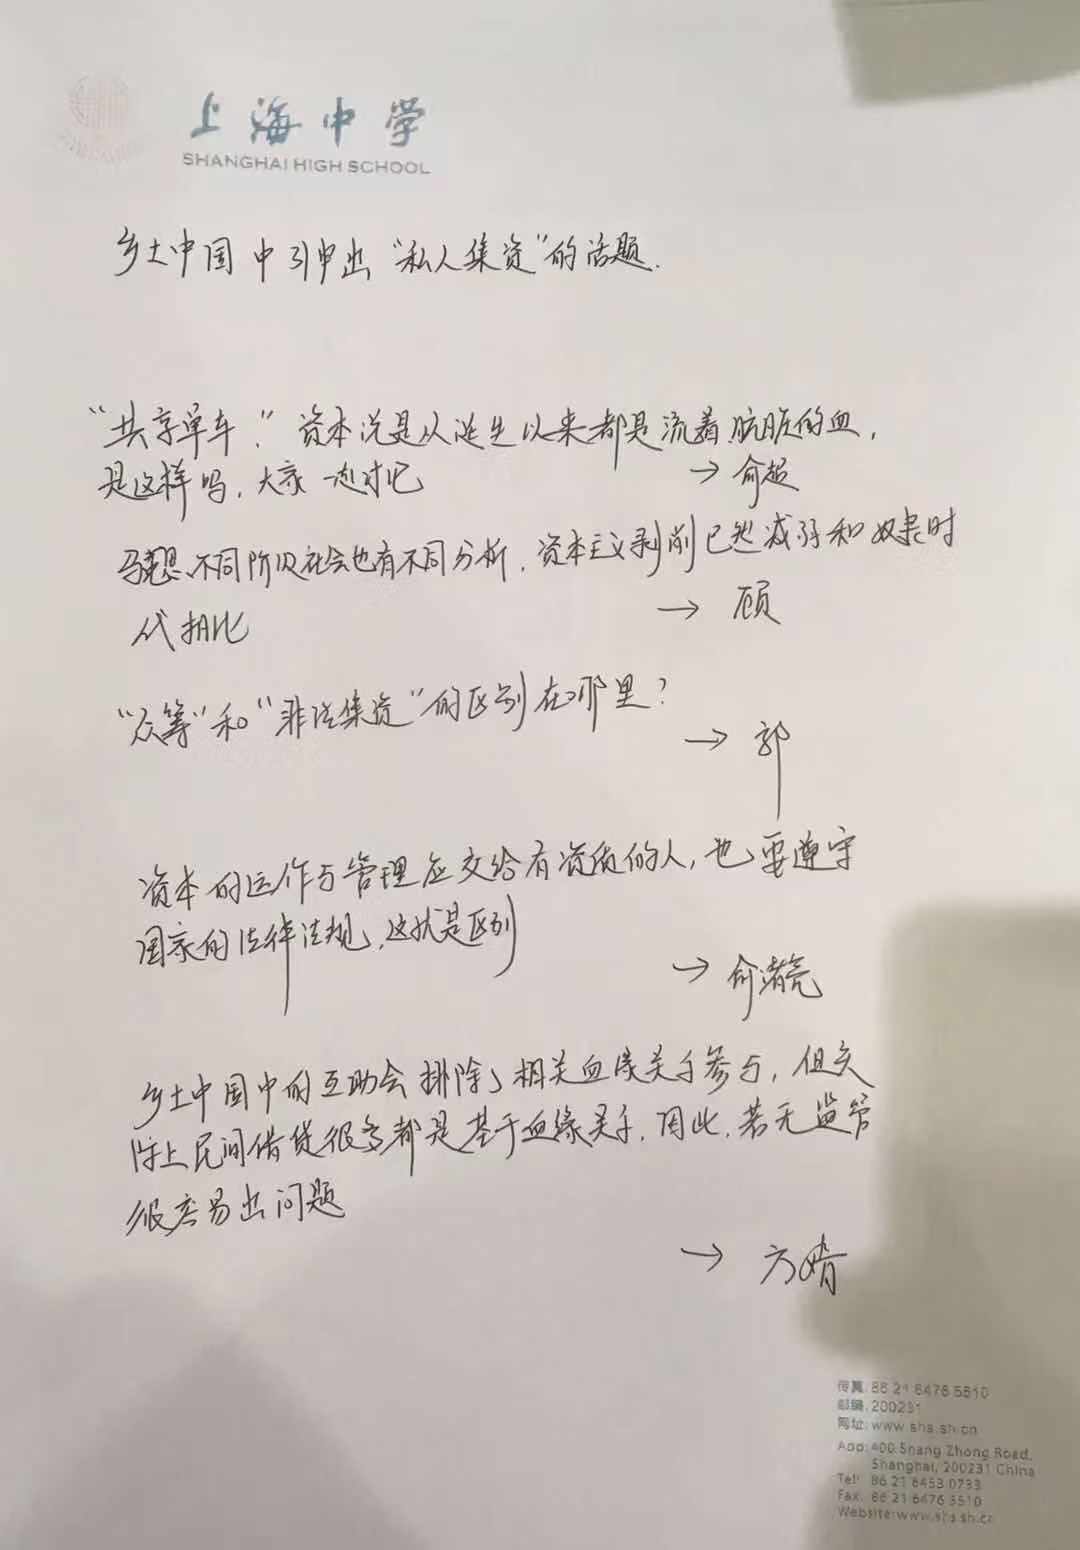 上海中学
SHANGHAI HIGH SCHOOL
乡土中国中引申出“私人集资”的话题.
“共享单车.”资本说是从诞生以来都是流着肮脏的血,
是这样吗,大家 对吧
→俞超
马克思 不同阶级社会也有不同分析,资本主义剥削已然减弱和奴隶时
代相比
→顾
“众筹”和“非法集资”的区别在哪里?
→郭
资本的运作与管理应交给有资质的人,也要遵守
国家的法律法规,这就是区别
→俞
乡土中国中的互助会排除了相关血缘关系参与,但实
际上民间借贷很多都是基于血缘关系.因此,若无监管
很容易出问题
→方婧
传真: 86 21 6476 5510
邮编: 200231
网址: www.shs.sh.cn
Add: 400 Shang Zhong Road,
Shanghai, 200231 China
Tel: 86 21 6453 0733
Fax: 86 21 6476 5510
Website: www.shs.sh.cn